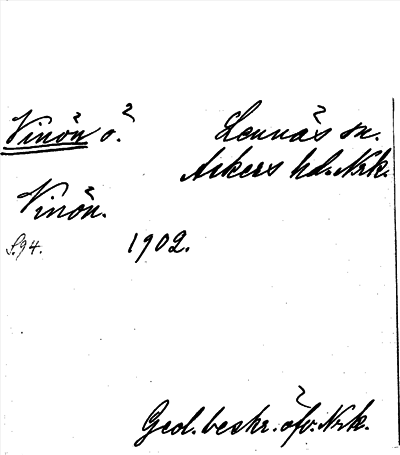 Vinön ö. Lennäs sn.
Askers hd. Nrk.
Vinön.
S.94. 1902.
Geol. beskr. öfv. Nrk.